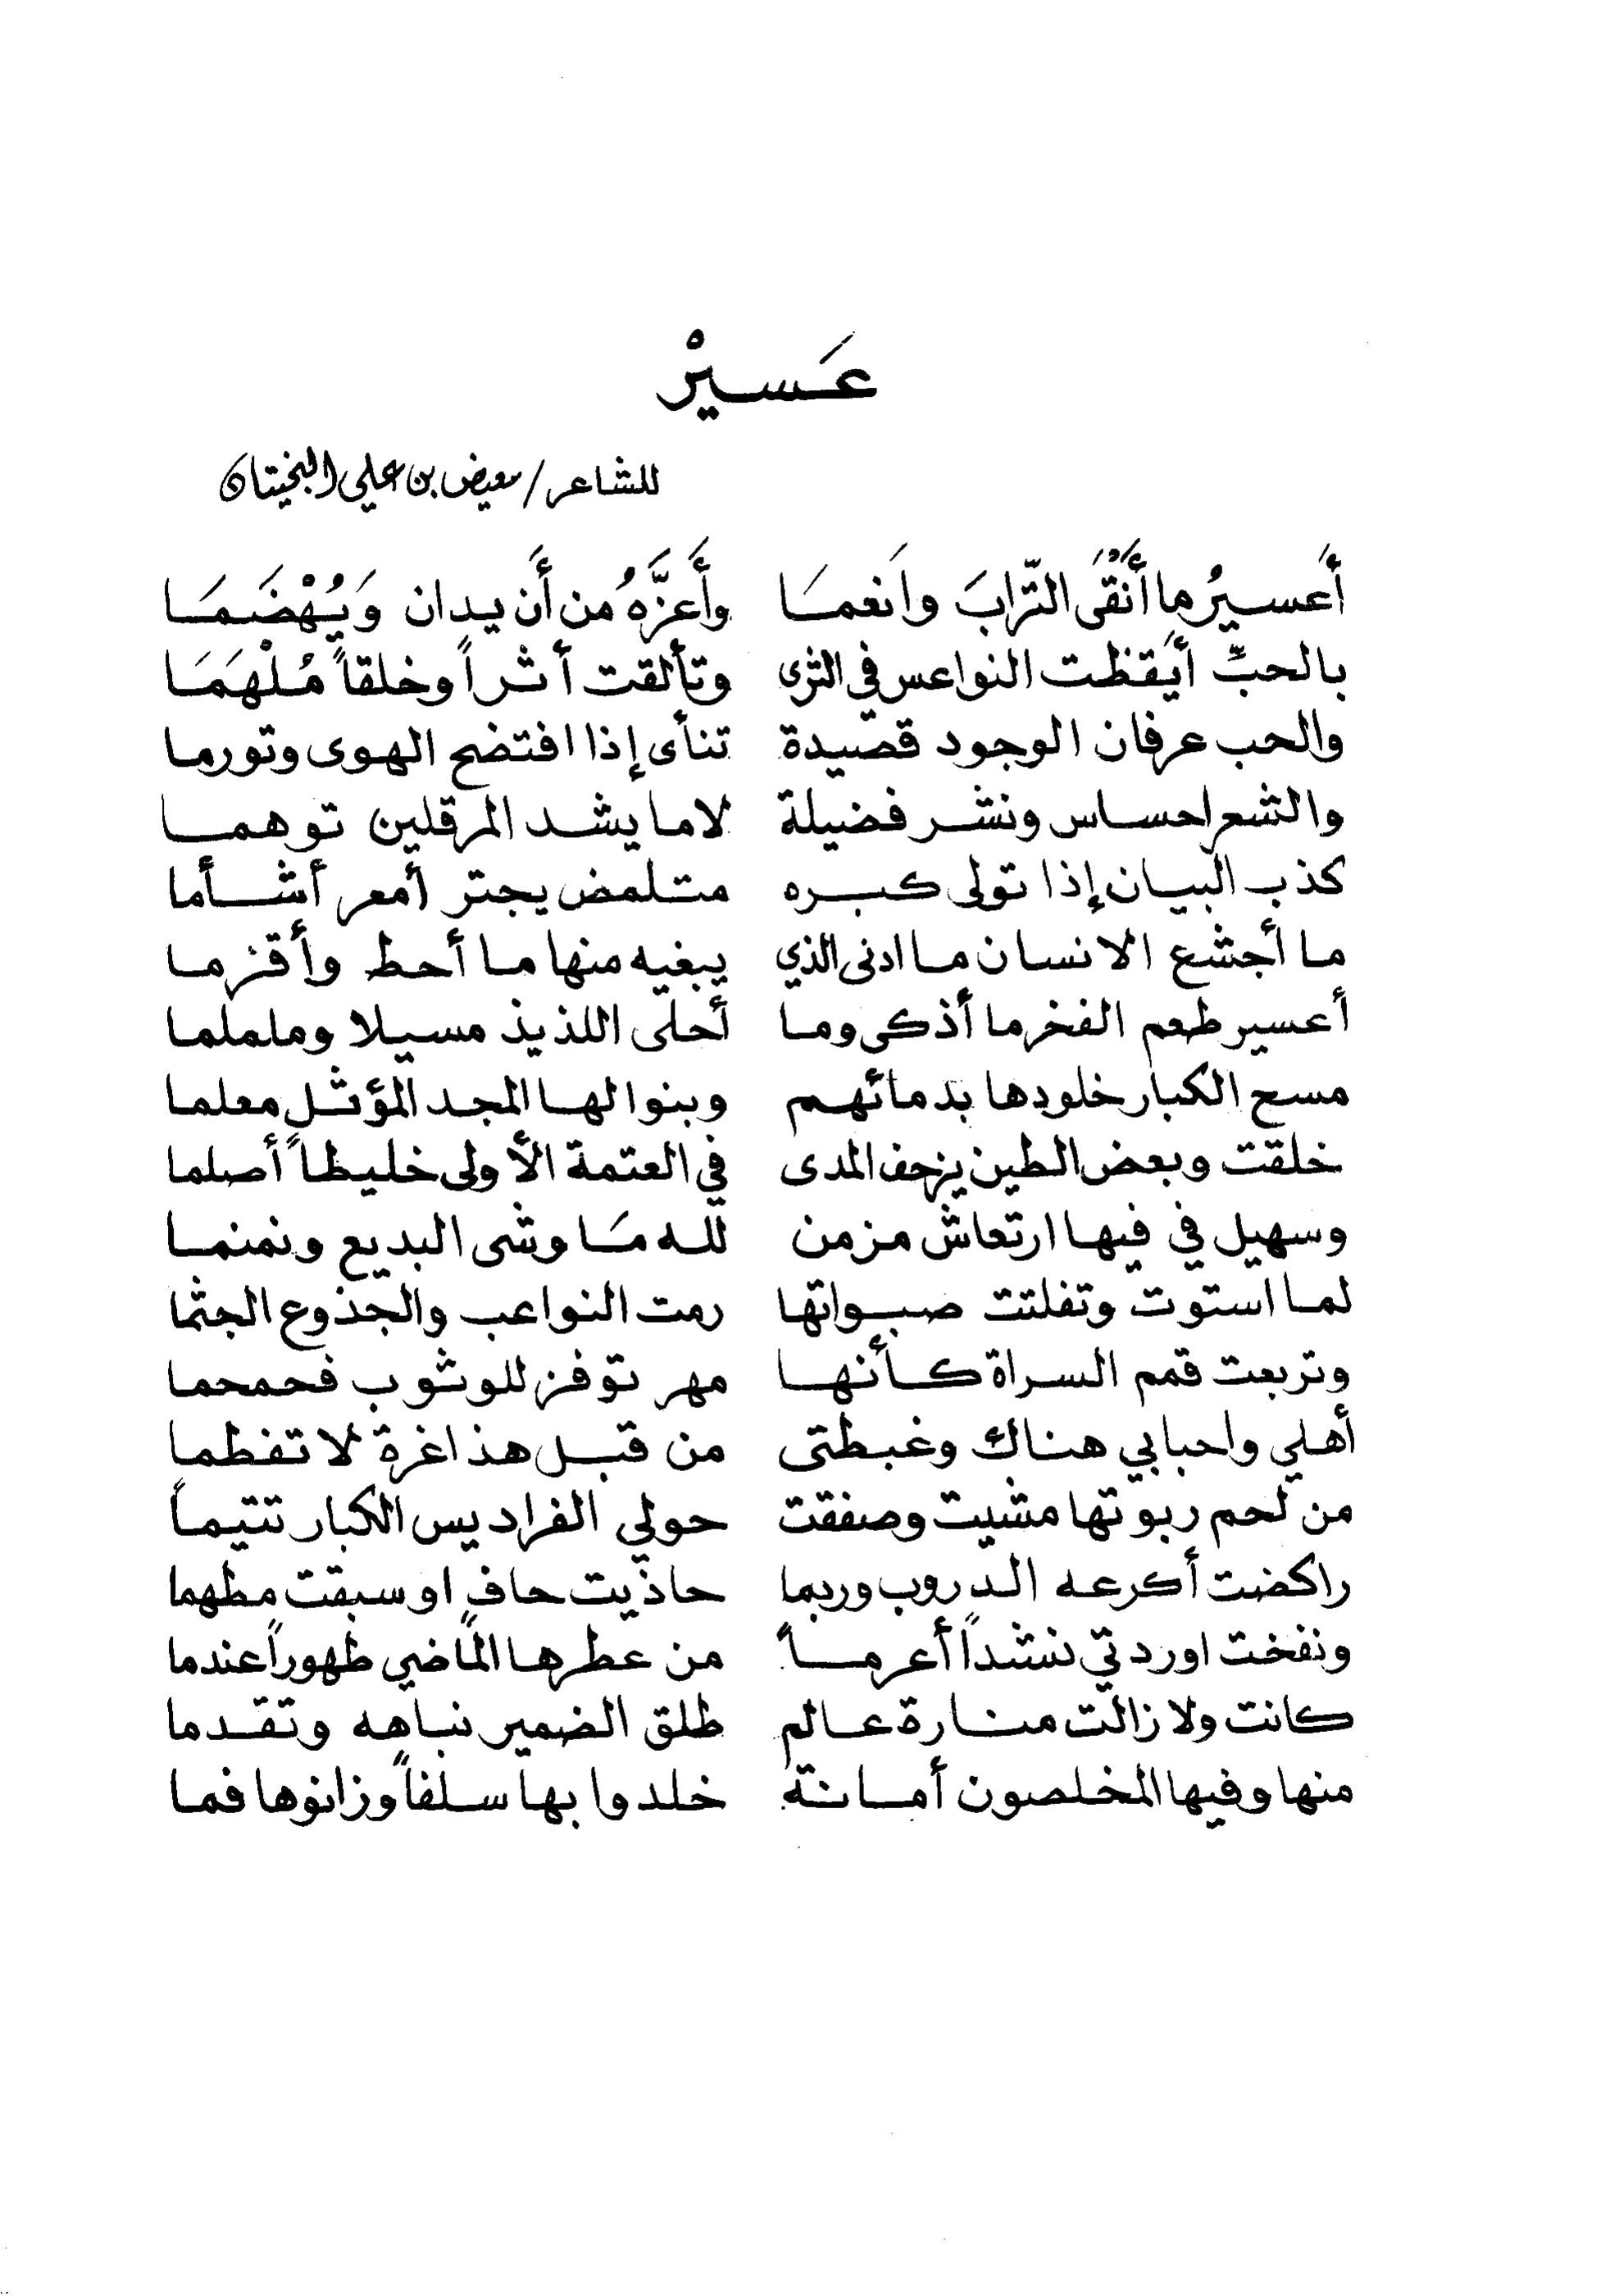 عَسيرْ
للشاعر / معيض بن علي البخيتان
أَعسيرُ ما أَنْقَى التّرابَ وَانعمَا وأَعزَّهُ من أَن يدان وَيُهْضَمَا
بالحبِّ أيقظت النواعس في الثرى وتألقت أثراً وخلقاً مُلْهَمَا
والحب عرفان الوجود قصيدة تنأى إذا افتضح الهوى وتورما
والشعر احساس ونشر فضيلة لا ما يشد المرقلين توهما
كذب البيان إذا تولى كبره متلمض يجتر أمعر أشأما
ما أجشع الانسان ما ادنى الذي يبغيه منها ما أحط وأقزما
أعسير طعم الفخر ما أذكى وما أحلى اللذيذ مسيلا وململما
مسح الكبار خلودها بدمائهم وبنوا لها المجد المؤثل معلما
خلقت وبعض الطين يزحف المدى في العتمة الأولى خليطاً أصلما
وسهيل في فيها ارتعاش مزمن لله مَا وشى البديع ونمنما
لما استوت وتفلتت صبواتها رمت النواعب والجذوع الجثما
وتربعت قمم السراة كأنها مهر توفز للوثوب فحمحما
أهلي واحبابي هناك وغبطتى من قبل هذا غرة لا تفطما
من لحم ربوتها مشيت وصفقت حولي الفراديس الكبار تتيماً
راكضت أكرعه الدروب وربما حاذيت حافٍ او سبقت مطهما
ونفخت اوردتي نشداً أعرماً من عطرها الماضي طهوراً عندما
كانت ولا زالت منارة عالم طلق الضمير نباهه وتقدما
منها وفيها المخلصون أمانة خلدوا بها سلفاً وزانوها فما